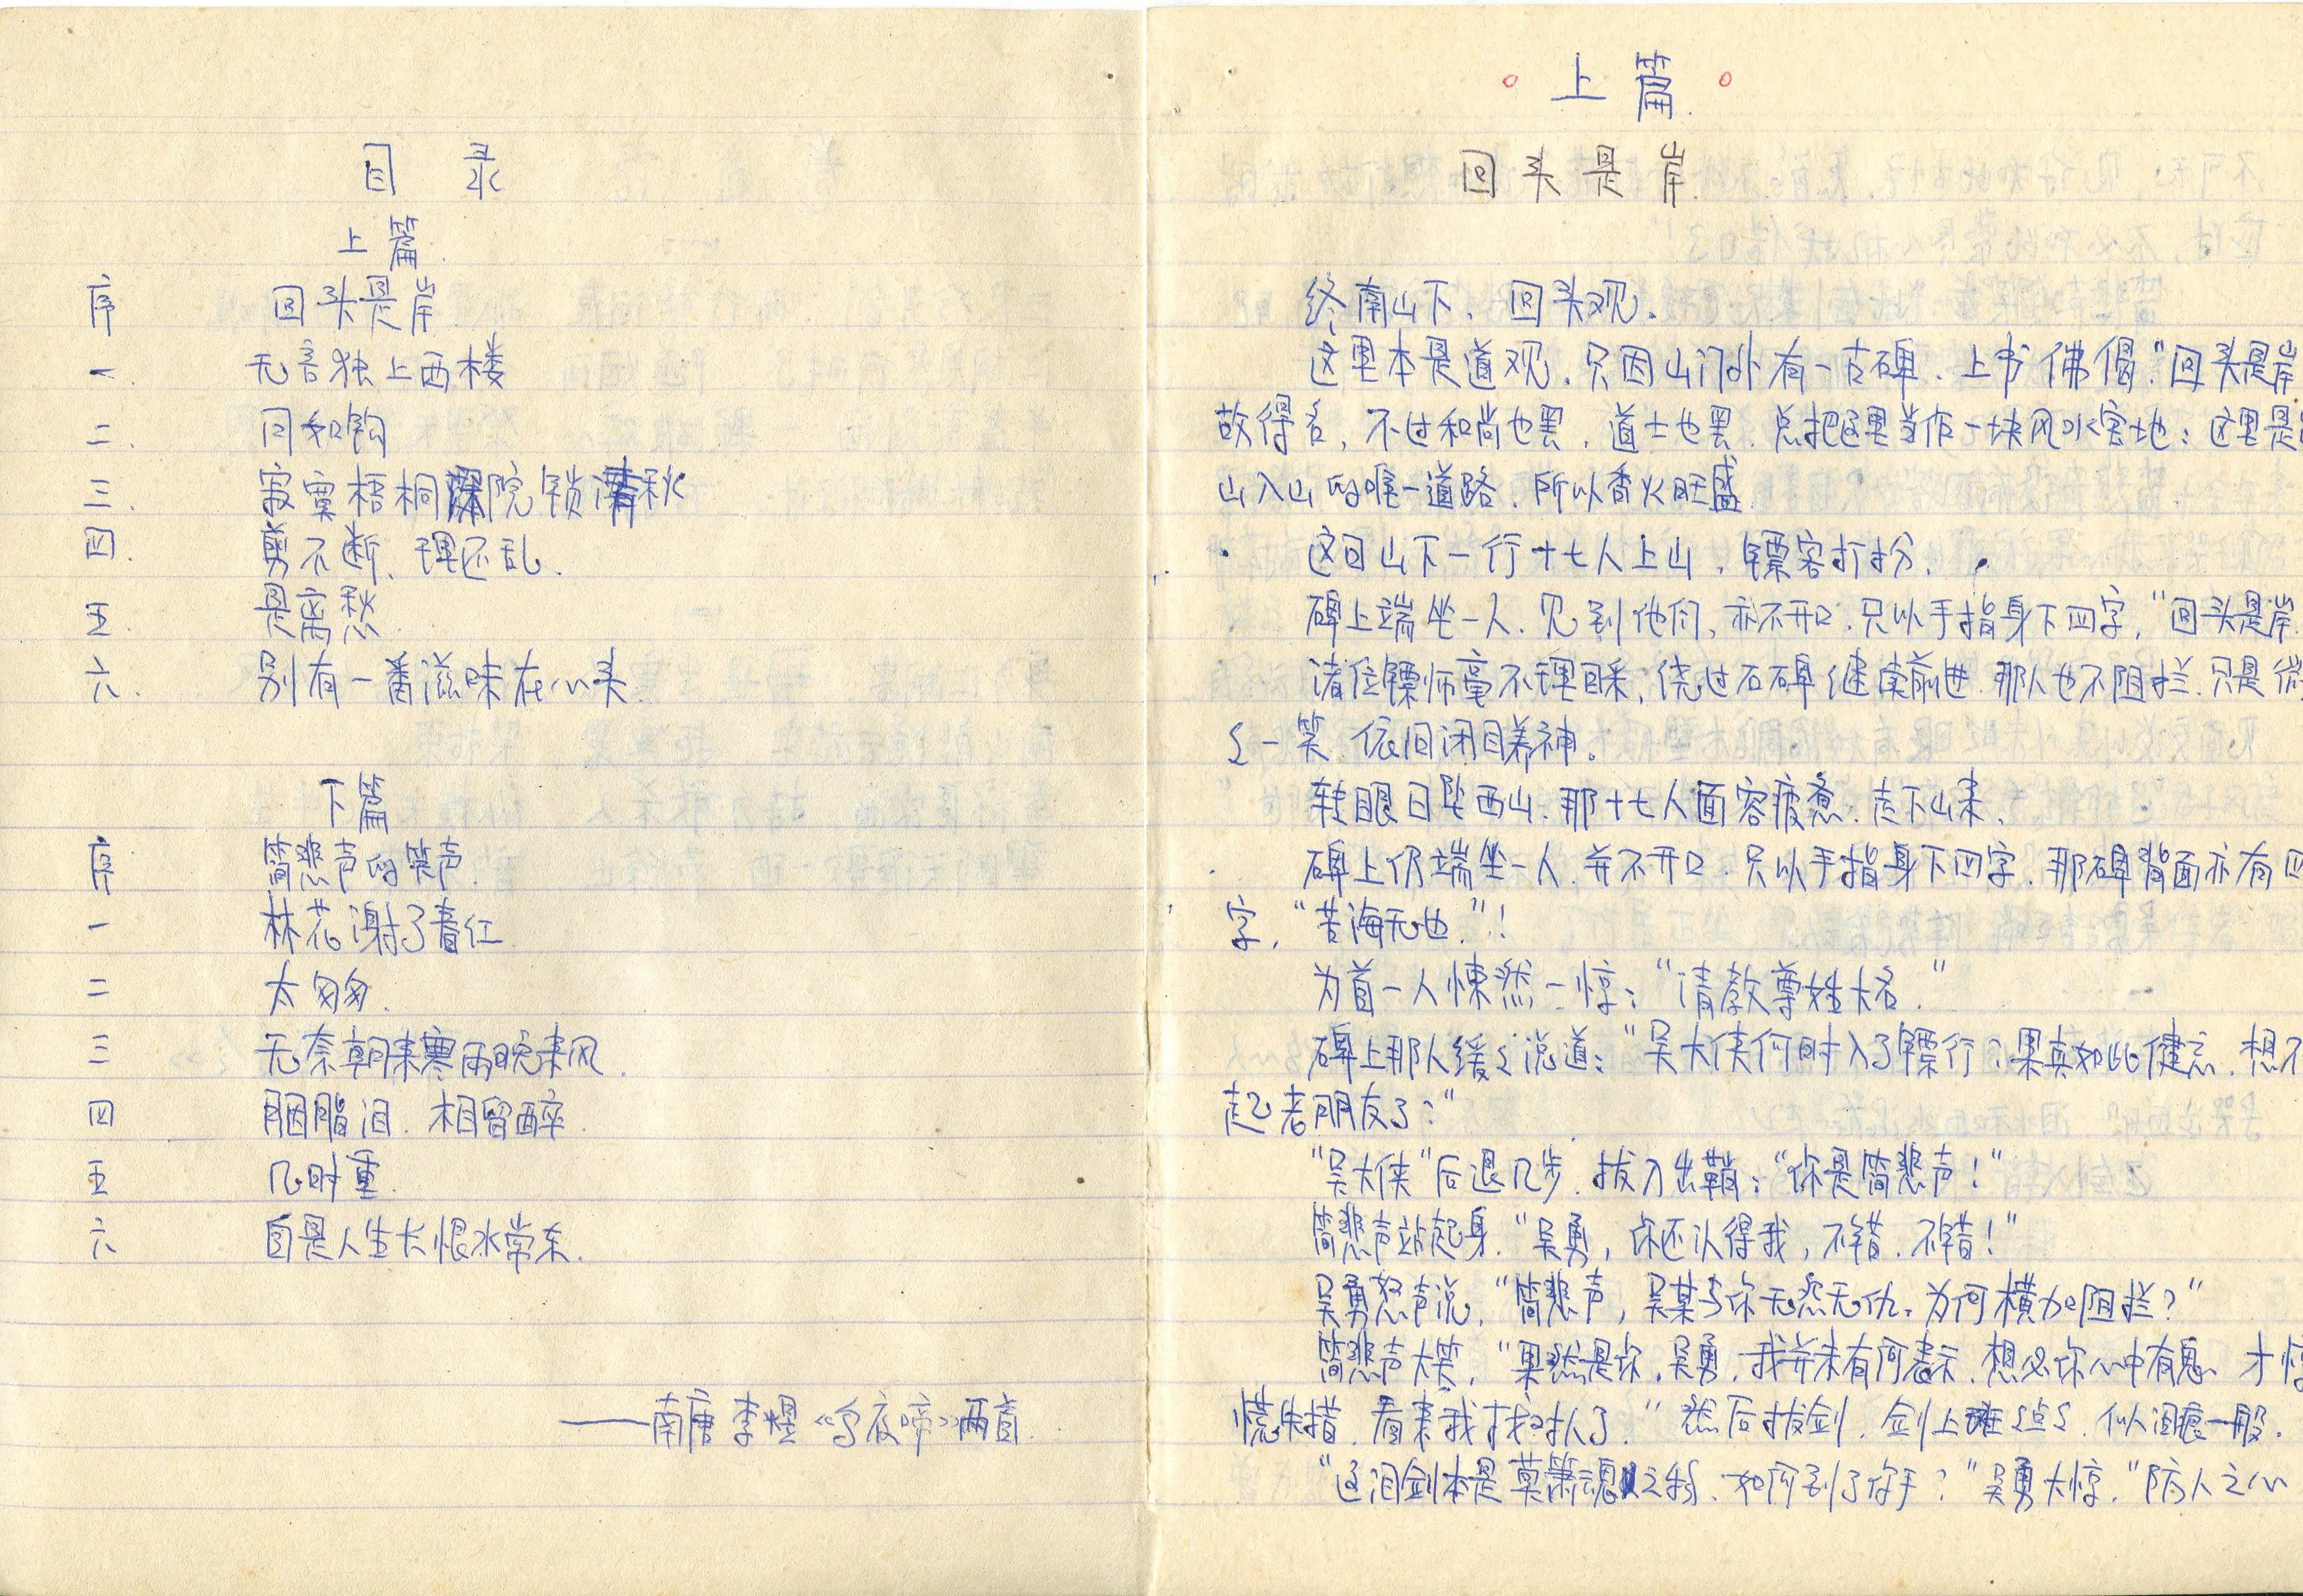 目 录
上篇
序 回头是岸
一. 无言独上西楼
二. 月如钩
三. 寂寞梧桐深院锁清秋
四. 剪不断、理还乱.
五. 是离愁
六. 别有一番滋味在心头.
下篇
序 简悲声的笑声.
一 林花谢了春红
二 太匆匆.
三 无奈朝来寒雨晚来风.
四 胭脂泪. 相留醉.
五 几时重.
六 自是人生长恨水常东.
——南唐 李煜《乌夜啼》两首.
上篇.
回头是岸.
终南山下、回头观.
这里本是道观. 只因山门外有一古碑. 上书佛偈“回头是岸
故得名, 不过和尚也罢, 道士也罢. 总把这里当作一块风水宝地; 这里是
山入山的唯一道路. 所以香火旺盛.
这日山下一行十七人上山, 镖客打扮.
碑上端坐一人. 见到他们, 亦不开口. 只以手指身下四字, “回头是岸
诸位镖师毫不理睬, 绕过石碑继续前进. 那人也不阻拦. 只是微
々一笑 依旧闭目养神.
转眼日坠西山. 那十七人面容疲惫. 走下山来.
碑上仍端坐一人. 并不开口. 只以手指身下四字. 那碑背面亦有四
字, “苦海无边.”!
为首一人悚然一惊: “请教尊姓大名.”
碑上那人缓々说道: “吴大侠何时入了镖行? 果真如此健忘. 想不
起老朋友了?”
“吴大侠”后退几步. 拔刀出鞘: “你是简悲声!”
简悲声站起身. “吴勇, 你还认得我, 不错. 不错!”
吴勇怒声说, “简悲声, 吴某与你无怨无仇. 为何横加阻拦?”
简悲声大笑, “果然是你, 吴勇, 我并未有何表示. 想必你心中有鬼 才惊
慌失措. 看来我找对人了.” 然后拔剑. 剑上斑々点々. 似泪痕一般.
“这泪剑本是莫箫魂之物. 如何到了你手?” 吴勇大惊. “防人之心